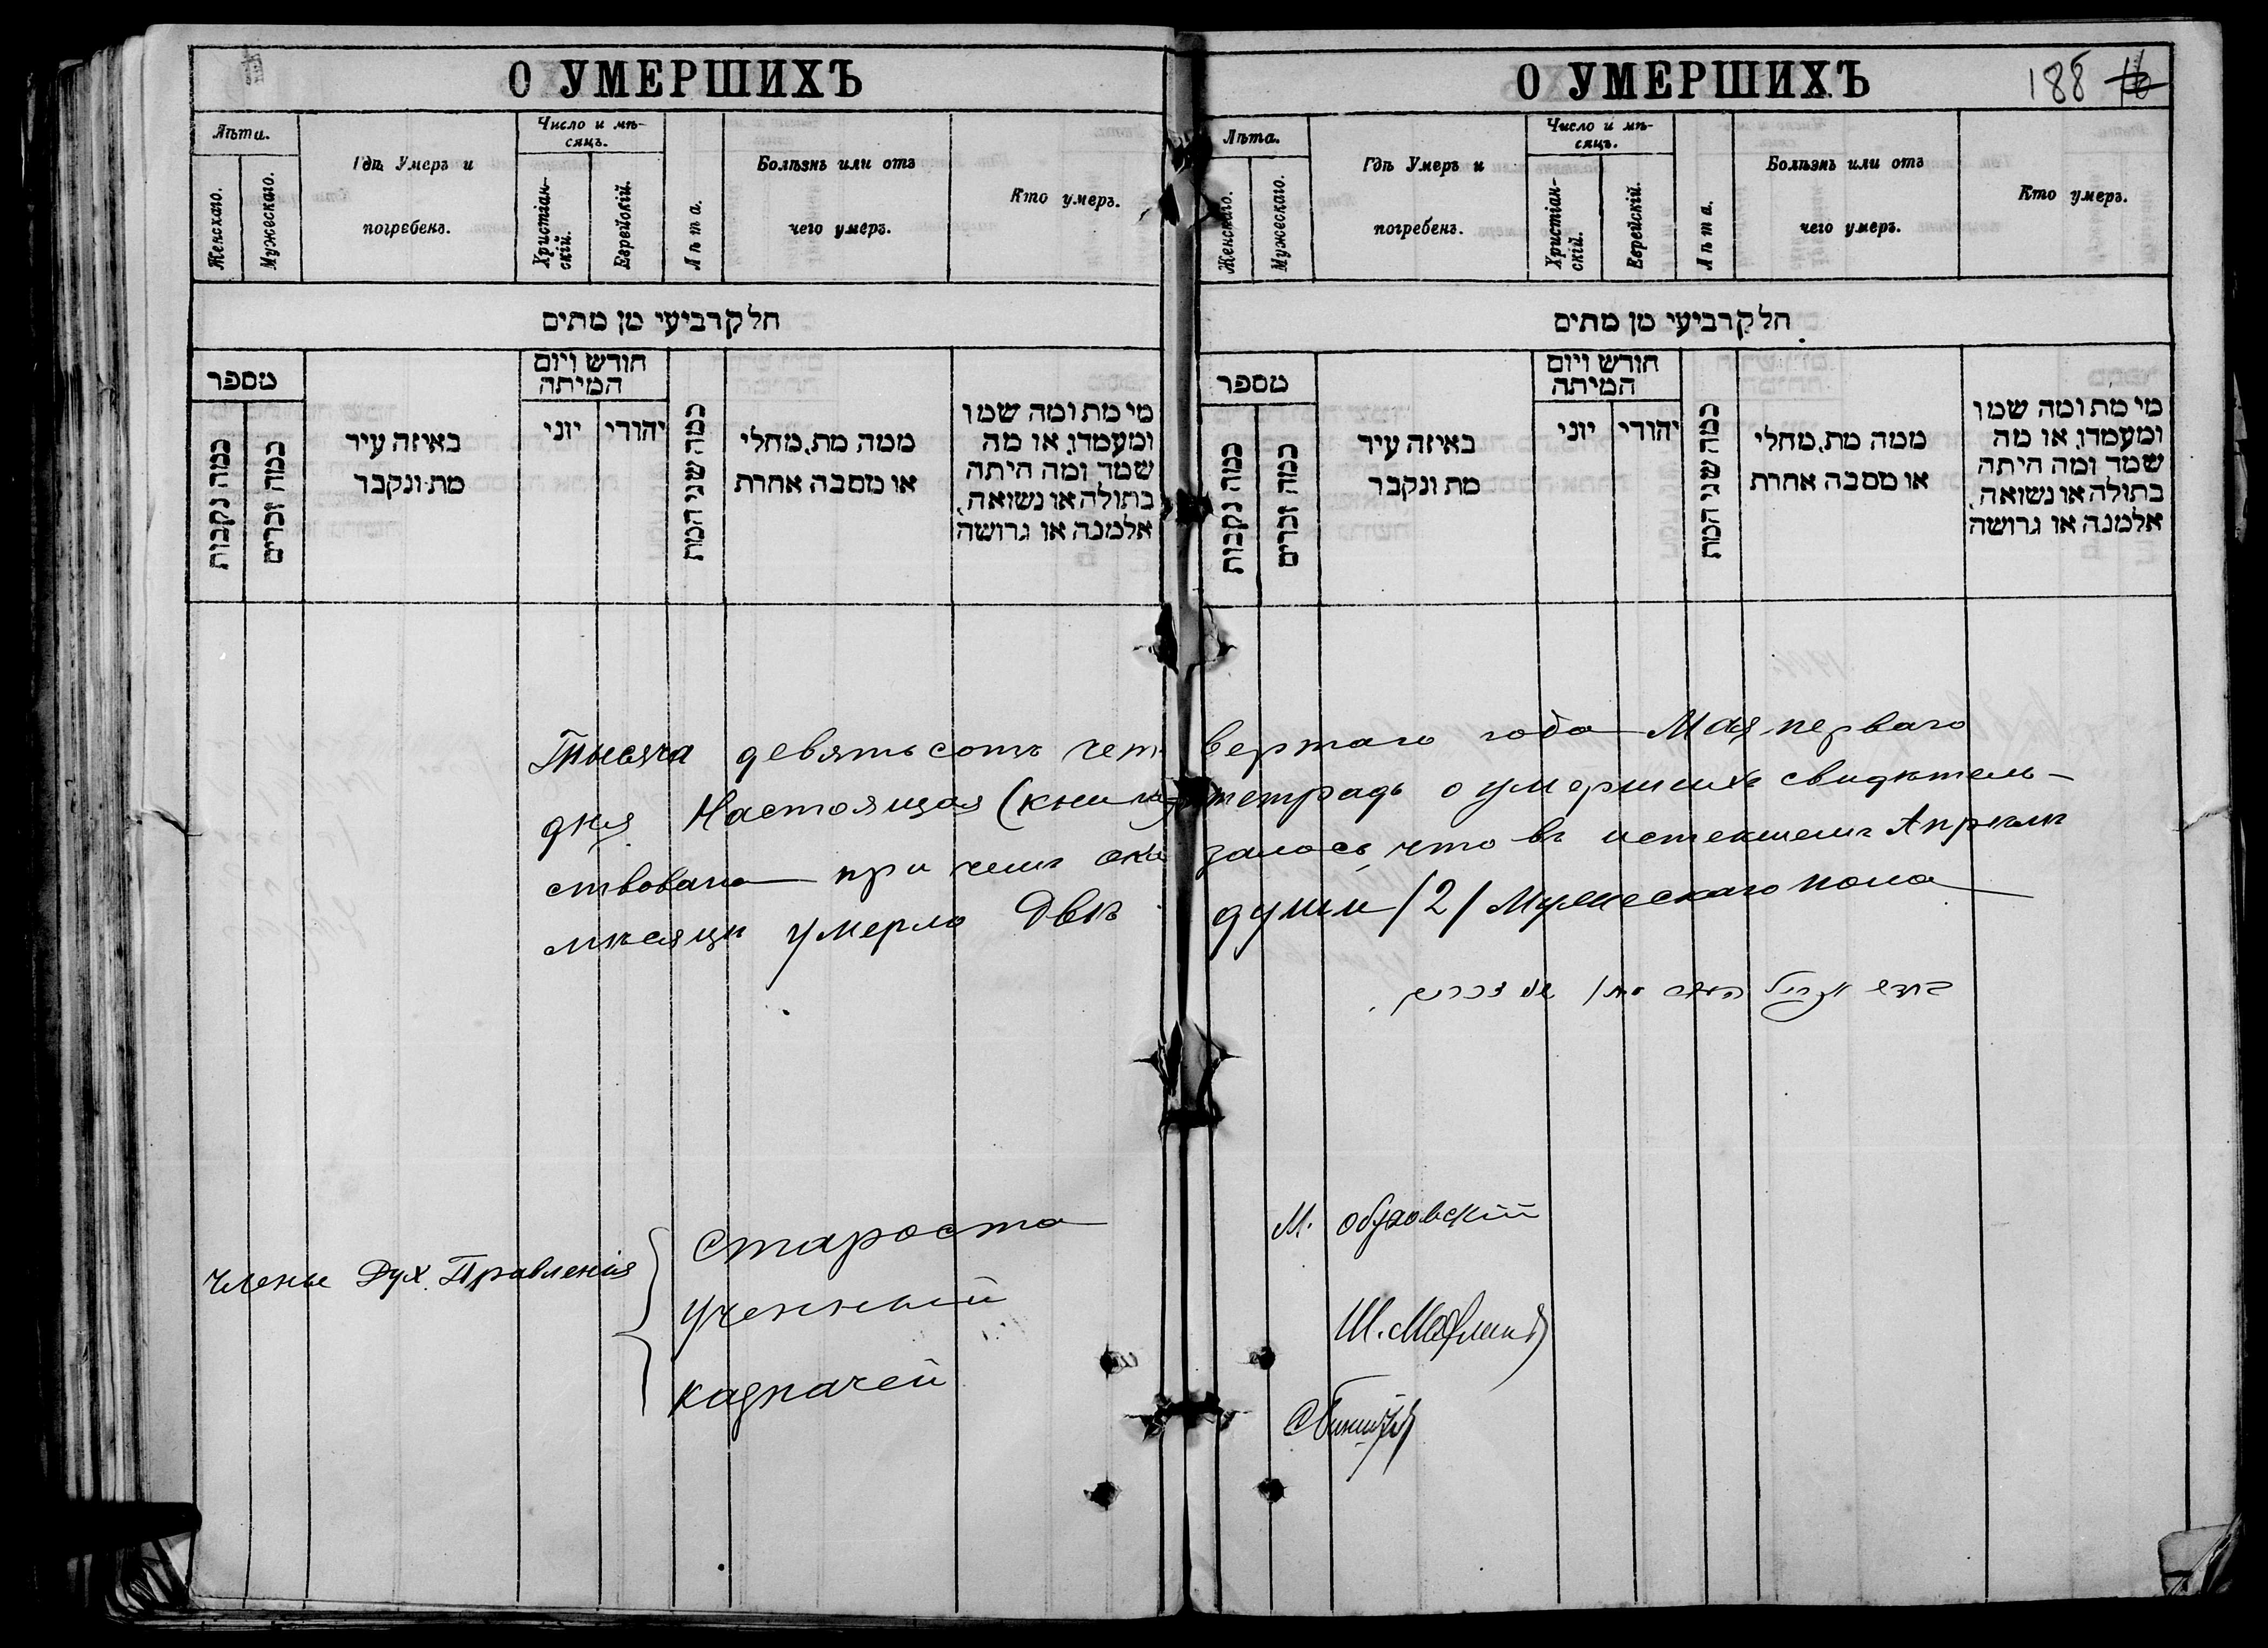 О УМЕРШИХЪ
Лѣта.
Женскаго.
Мужескаго.
Гдѣ Умеръ и
погребенъ.
Число и мѣ-
сяцъ.
Христіан-
скій.
Еврейскій.
Лѣта.
Болѣзнь или отъ
чего умеръ.
Кто умеръ.
חלק רביעי מן מתים
מספר
כמה נקבות
כמה זכרים
באיזה עיר
מת ונקבר
חודש ויום
המיתה
יוני
יהודי
כמה שני המת
ממה מת, מחלי
או מסבה אחרת
מי מת ומה שמו
ומעמדו, או מה
שמד ומה היתה
בתולה או נשואה,
אלמנה או גרושה
О УМЕРШИХЪ
188
Лѣта.
Женскаго.
Мужескаго.
Гдѣ Умеръ и
погребенъ.
Число и мѣ-
сяцъ.
Христіан-
скій.
Еврейскій.
Лѣта.
Болѣзнь или отъ
чего умеръ.
Кто умеръ.
חלק רביעי מן מתים
מספר
כמה נקבות
כמה זכרים
באיזה עיר
מת ונקבר
חודש ויום
המיתה
יוני
יהודי
כמה שני המת
ממה מת, מחלי
או מסבה אחרת
מי מת ומה שמו
ומעמדו, או מה
שמד ומה היתה
בתולה או נשואה,
אלמנה או גרושה
Тысяча девятьсотъ четвертаго года Мая перваго
дня Настоящая (книга) тетрадь о умершихъ свидѣтель-
ствована при чемъ оказалось, что въ истекшемъ Апрѣлѣ
мѣсяцѣ умерло Двѣ души /2/ Мужескаго пола
Члены Дух. Правленія
Староста
М. Обуховскій
Ученный
Ш.
Казначей